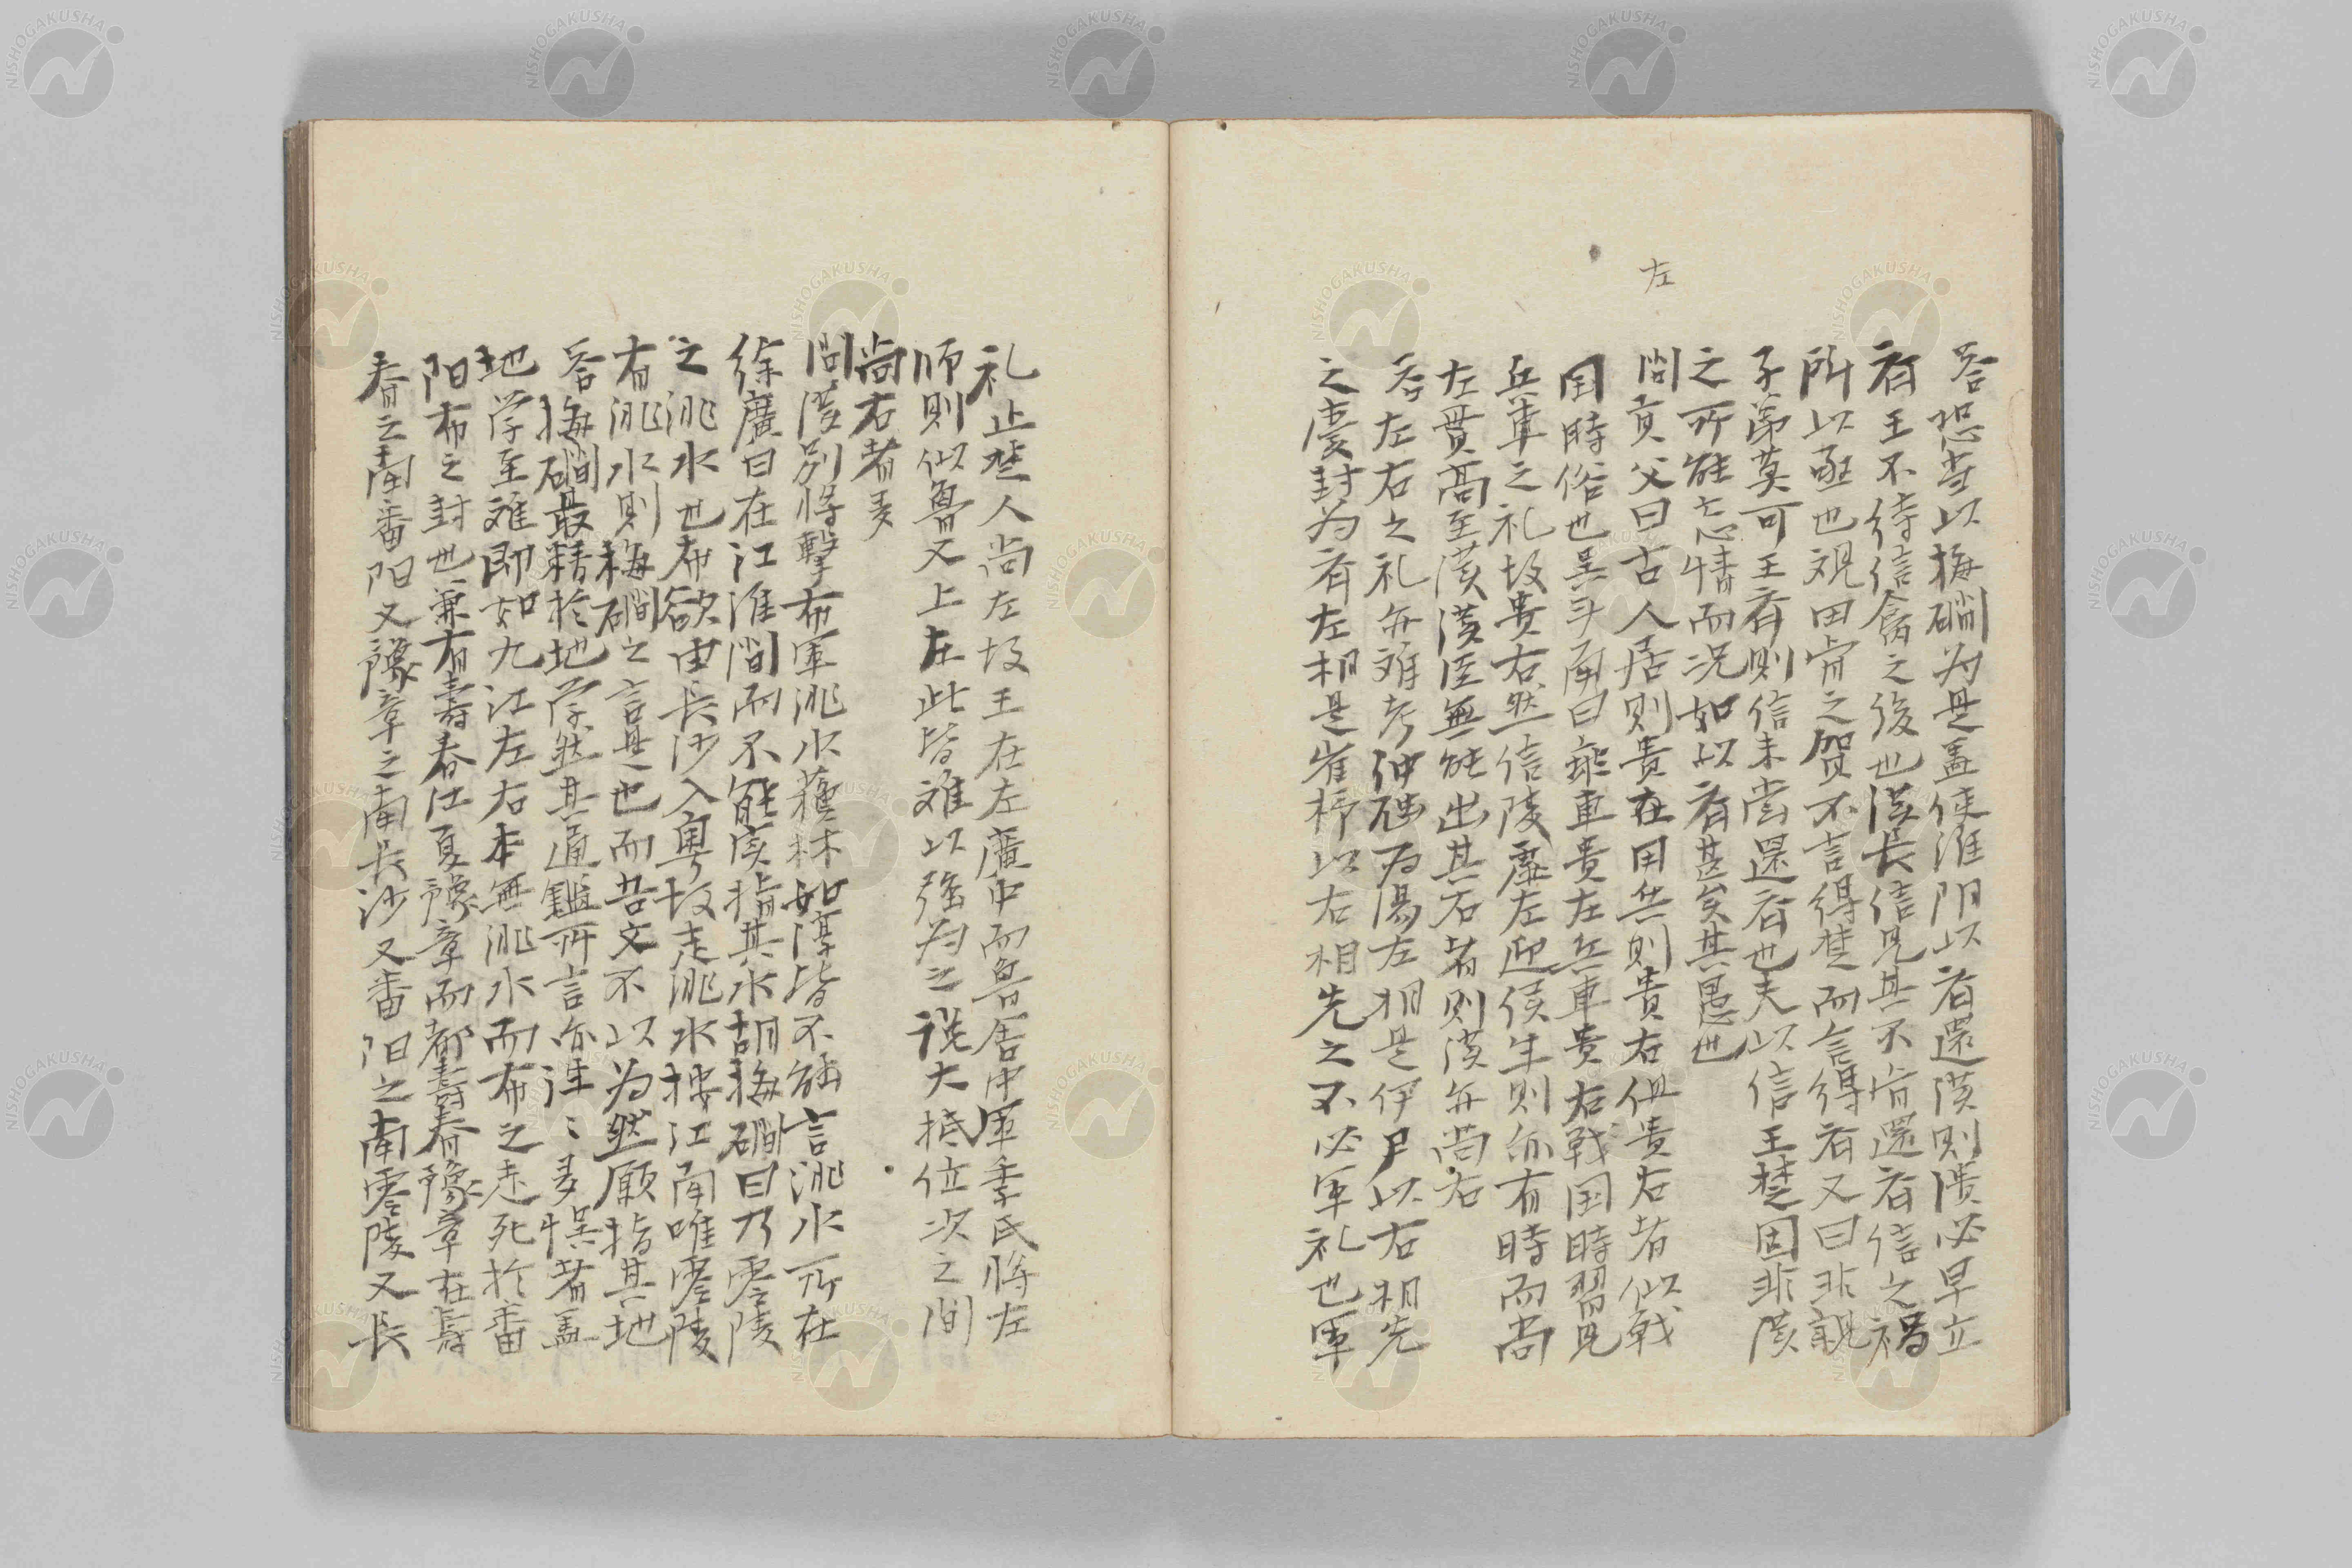 左
答恐當以梅磵为是盖使淮阴以齐還漢則漢必早立
齐王不待信禽之後也漢長信見其不肯還齐信之禍
所以亟也視田肯之贺不言得楚而言得齐又曰非親
子弟莫可王齐則信未尝還齐也夫以信王楚固非漢
之所能忘情而况如以齐甚矣其愚也
問貢父曰古人居則贵在用兵則贵右但贵右者似戰
国時俗也呉斗南曰乘車贵左兵車贵右戰国時習見
兵車之礼故贵右然信陵虚左迎侯生則亦有時而尚
左貫高至漢漢臣無能出其右者則漢亦尚右
答左右之礼亦难考仲虺为湯左相是伊尹以右相先
之慶封为齐左相是崔杼以右相先之不必军礼也軍
礼止楚人尚左故王在左廣中而魯居中軍季氏將左
师則似魯又上左此皆难以強为之説大抵位次之間
尚右者多
問漢别將擊布軍洮水蘓林如淳皆不能言洮水所在
徐廣曰在江淮間而不能实指其水胡梅磵曰乃零陵
之洮水也布欲由長沙入粤故走洮水按江南唯零陵
有洮水則梅磵之言是也而吾丈不以为然願指其地
答梅磵最精於地学然其通鑑所言亦往〻多悮者盖
地学至难即如九江左右本無洮水而布之走死於番
阳布之封也兼有壽春江夏豫章而都壽春豫章在壽
春之南番阳又豫章之南長沙又番阳之南零陵又長